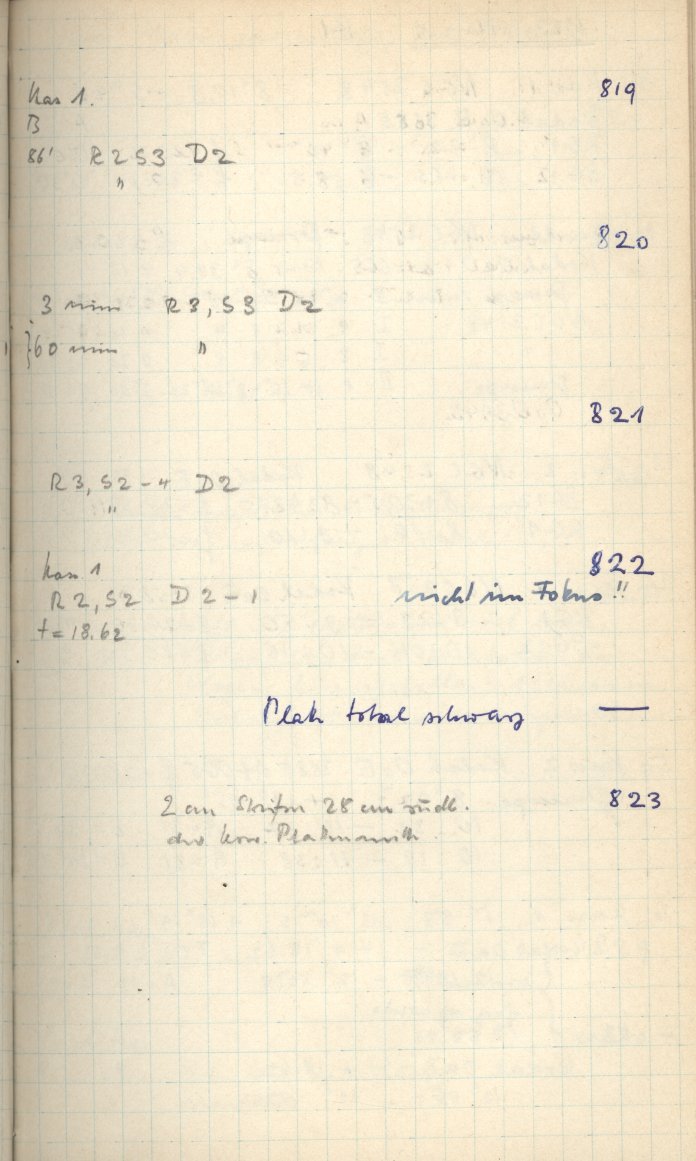 Kas 1. 819
B
86' R2 S3 D2
"
820
3 min R3, S3 D2
}60 min "
821
R3, S2-4 D2
"
Kas. 1 822
R2, S2 D2-1 nicht im Fokus!!
t = 18.62
Platte total schwarz —
2 cm Streifen 28 cm südl. 823